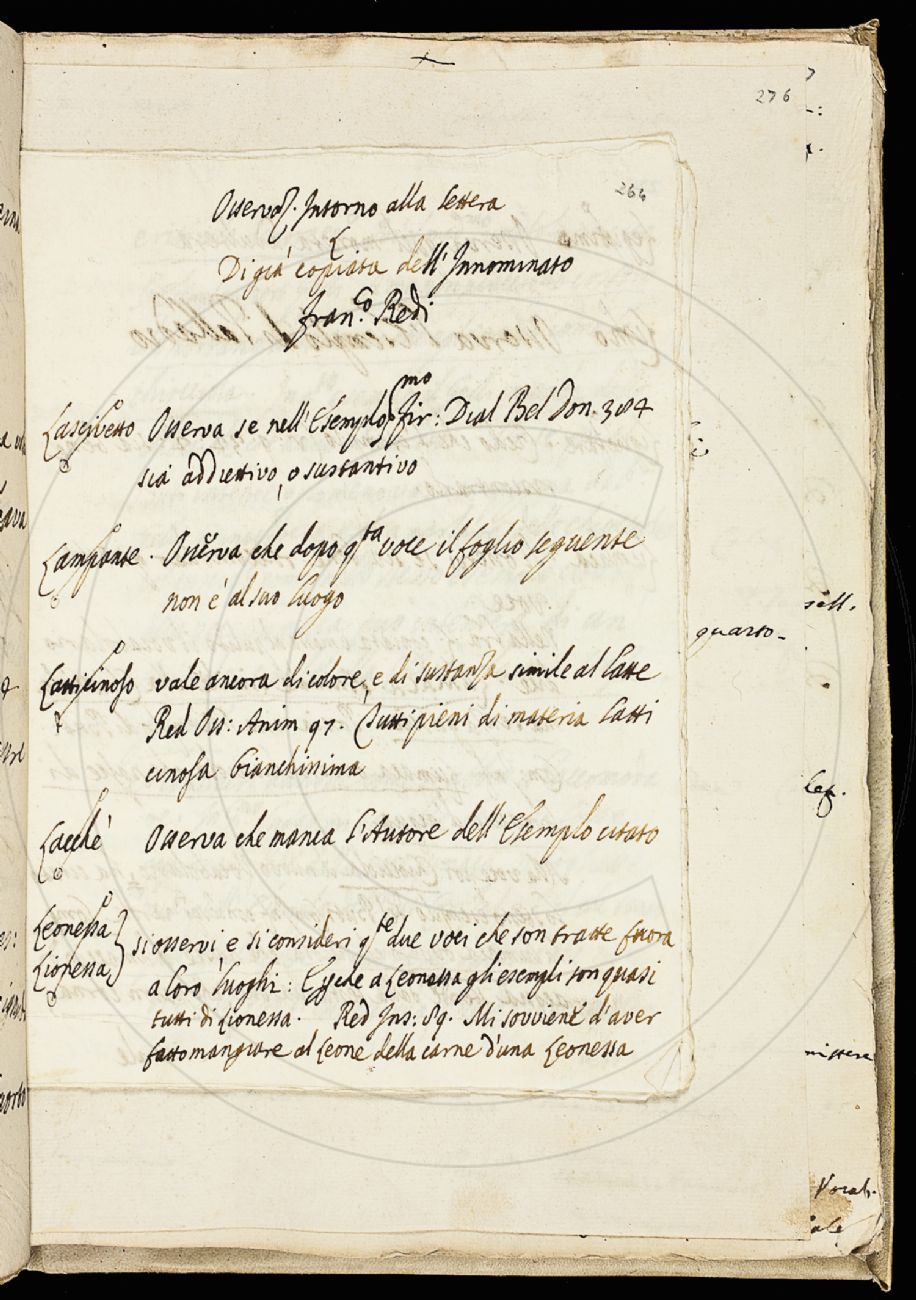 276
264
Osservaz. Intorno alla lettera
L
Di già copiata dell' Innominato
Fran.co Redi
Lascivetto Osserva se nell' Esemplo pmo Fir: Dial Bel Don. 384
sia addiettivo, o sustantivo
Lampante. Osserva che dopo qta voce il foglio seguente
non è al suo luogo
Latticinoso vale ancora di colore, e di sustanza simile al latte
Red Oss: Anim 97. Tutti pieni di materia latti
cinosa bianchissima
Lacchè Osserva che manca l'Autore dell' Esemplo citato
Leonessa } si osservi, e si consideri qte due voci che son tratte fuora
Lionessa } a loro luoghi: E che a Leonessa gli esempli son quasi
tutti di Lionessa. Red Ins: 89. Mi sovviene d'aver
fatto mangiare al leone della carne d'una Leonessa
quarto